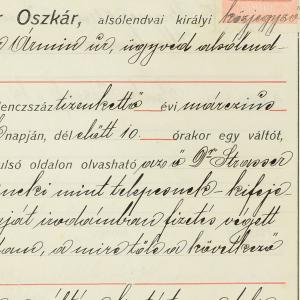 r Oszkár, alsólendvai királyi közjegyző
Ármin úr, ügyvéd alsólend-
lenczszáz tizenkettő évi márczius
napján, dél előtt 10. órakor egy váltót,
ulsó oldalon olvasható az ő Dr Strasser
neki mint telepesnek - kifeje
ját irodámban fizetés végett
tam, a mire tőle a következő